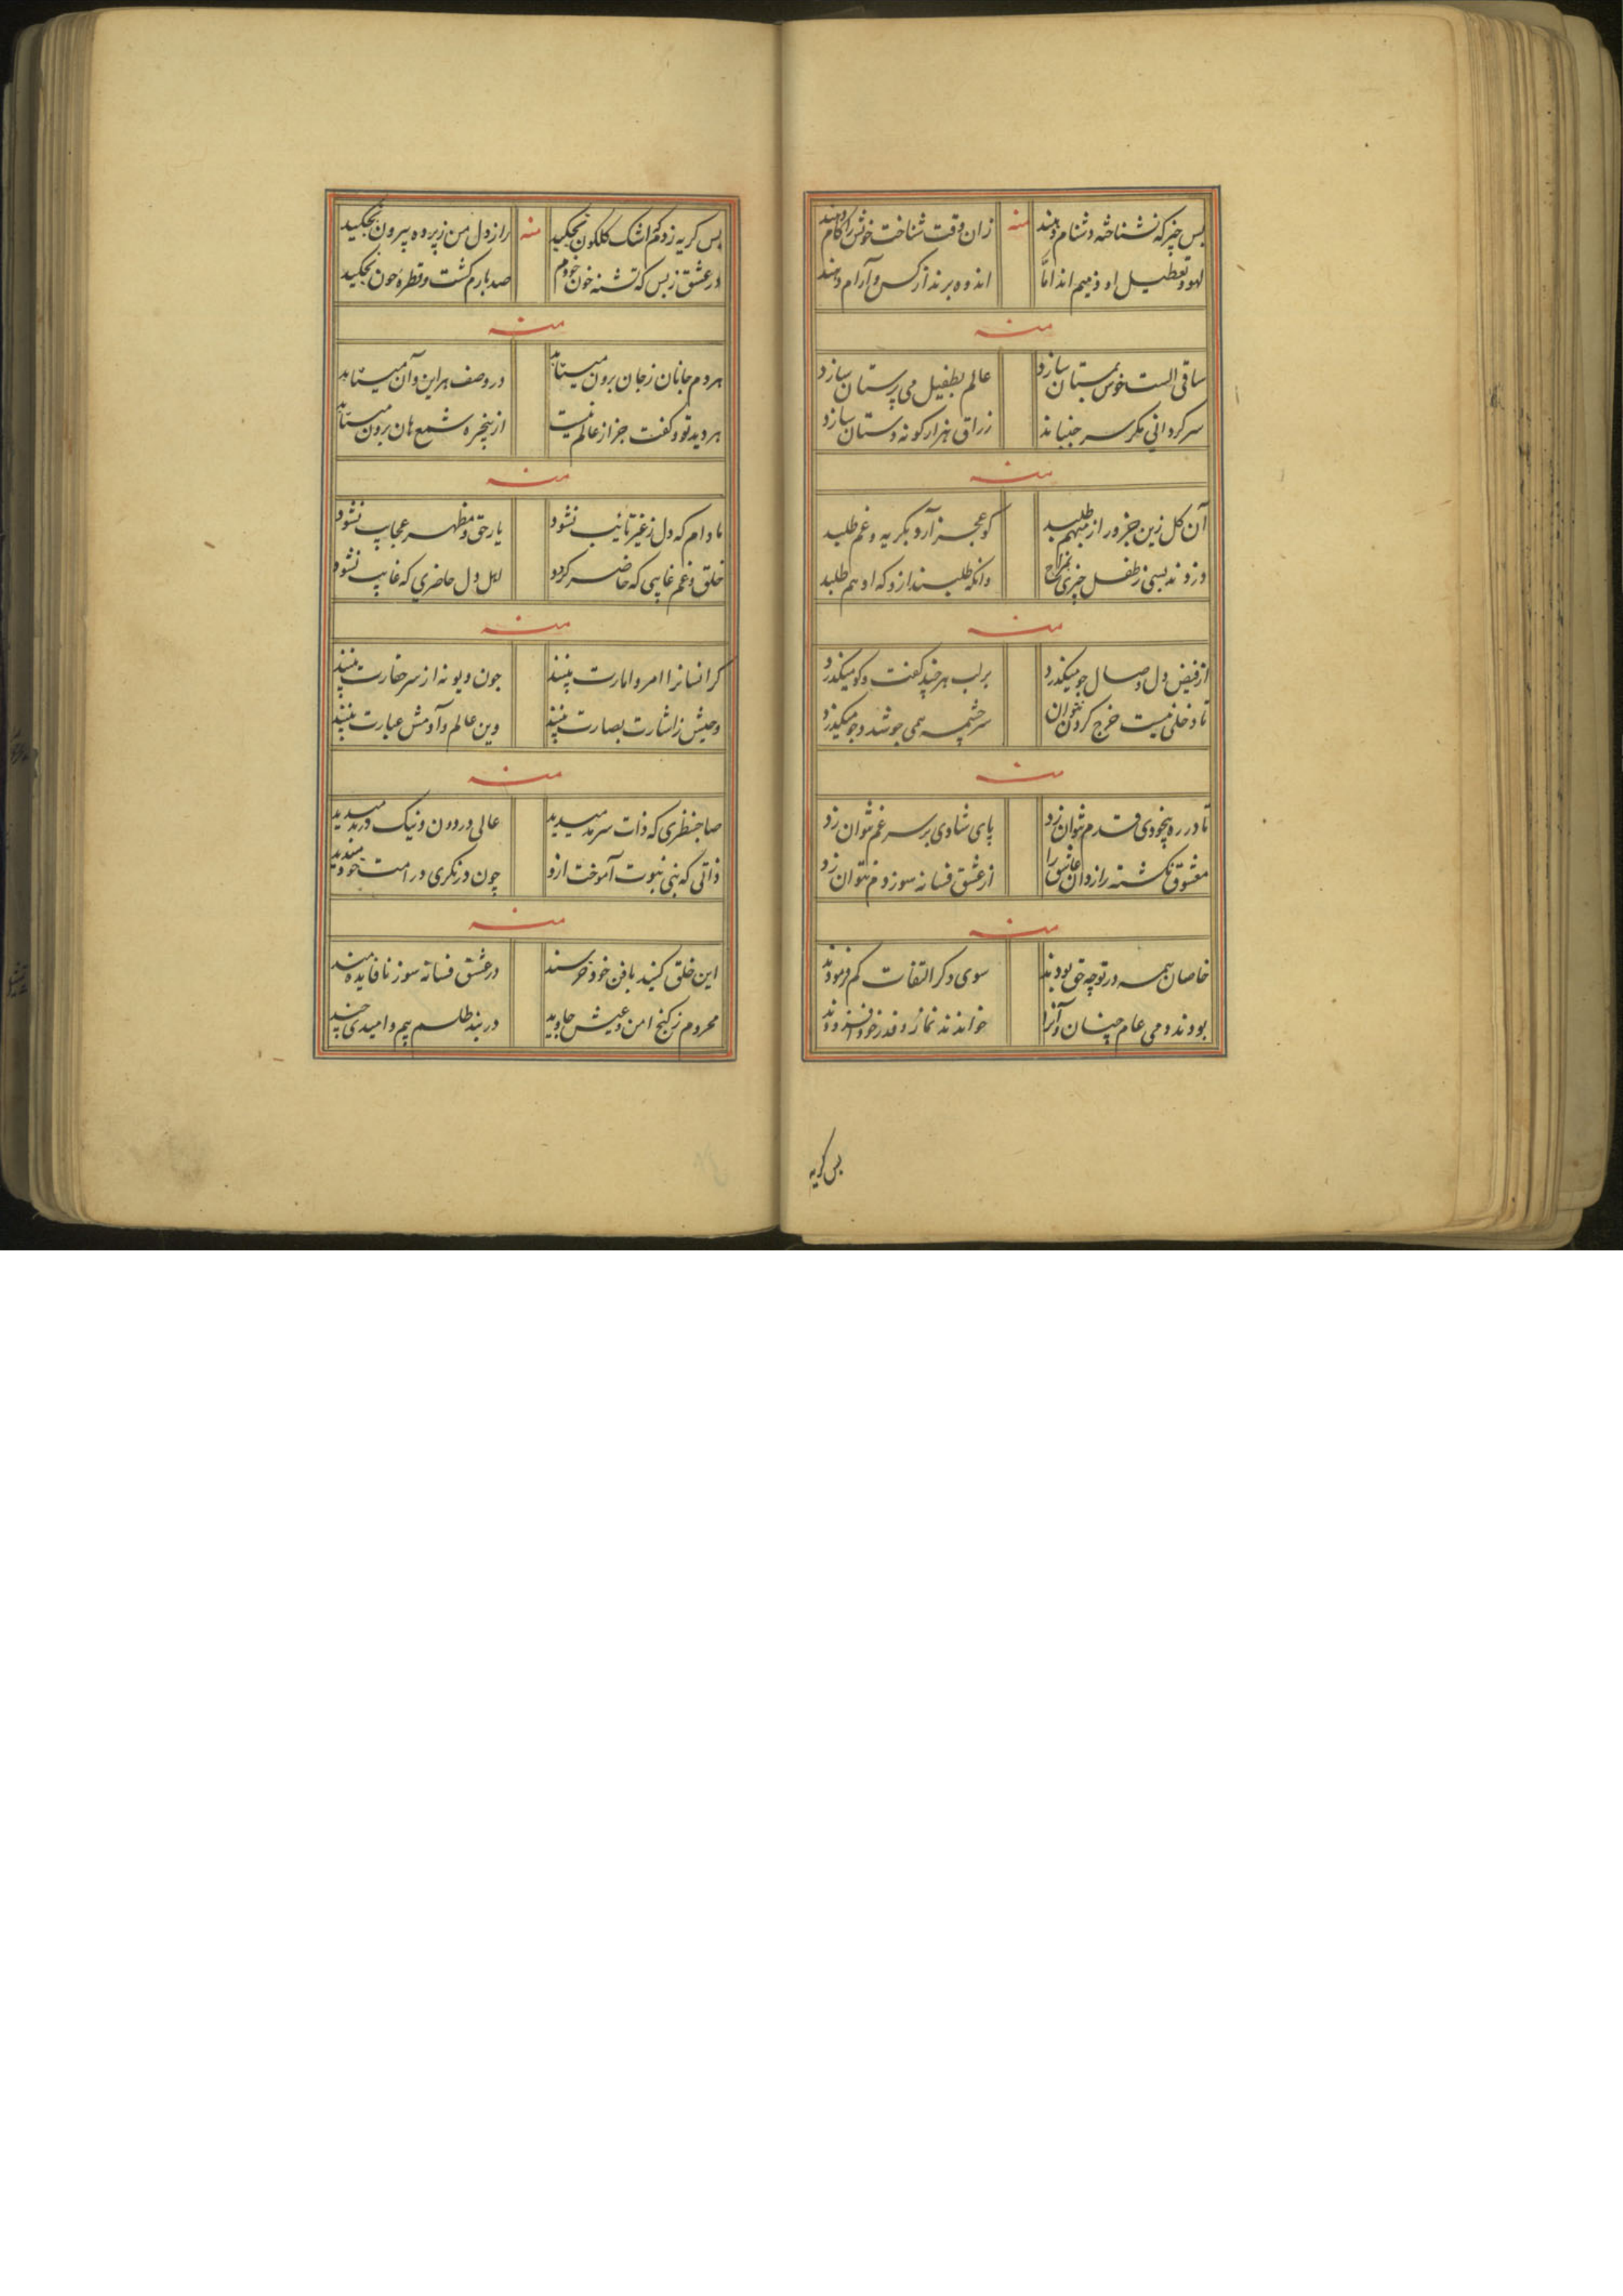 بس چیز که نشناخته دشنام دهند منه زان وقت شناخت خوش را کام دهند
لهو و تعطیل او ذمیم اند امّا اندوه برند از کس و آرام دهند
منه
ساقی الست خوش بمستان سازد عالم بطفیل می پرستان سازد
سرکردانی مکر سر جنباند زراق هزار کونه دستان سازد
منه
آن کل زین جزو راز مبهم طلبد کو عجز آرد بکریه و غم طلبد
دزدند بسی ز طفل چیزی بمزاح وانکه طلبند ازو که او هم طلبد
منه
از فیض دل وصال جو میکذرد بر لب هر چند کفت و کو میکذرد
تا دخلی نیست خرج کردن نتوان سرچشمه همی جوشد و جو میکذرد
منه
تا در ره بیخودی قدم نتوان زد پای شادی بر سر غم نتوان زد
معشوق نکشته رازدان عاشق را از عشق فسانه سوز دم نتوان زد
منه
خاصان همه در توجه حق بودند سوی دکر التفات کم فرمودند
بودند ومی عام چنان و آنرا خواندند نماز و قدر خود افزودند
بس کریه
بس کریه زدم کم اشک کلکون نچکید منه راز دل من ز پرده بیرون نچکید
در عشق ز بس که تشنه خون خودم صد بارم کشت و قطرهٔ خون نچکید
منه
هر دم جانان ز جان برون میتابد در وصف هر این و آن میتابد
هر دید تو و کفت جز از عالم نیست از پنجره شمع هان برون میتابد
منه
مادام که دل ز غیر تائب نشود یار حق و مظهر عجایب نشود
خلق و غم غایبی که حاضر کردد اهل دل حاضری که غایب نشود
منه
کر انسانرا امر و امارت بینند جون دیو نه از سر حقارت بینند
وحیش ز اشارت بصارت بینند وین عالم و آدمش عبارت بینند
منه
صاحبنظری که ذات سرمد میدید عالی در دون و نیک در بد میدید
ذاتی که نبی نبوت آموخت ازو چون در نکری در امت خود میدید
منه
این خلق کنند با فن خود خرسند در عشق فسانه سوز نافایده مند
محروم ز کنج امن و عیش جاوید در بند طلسم بیم و امیدی چند